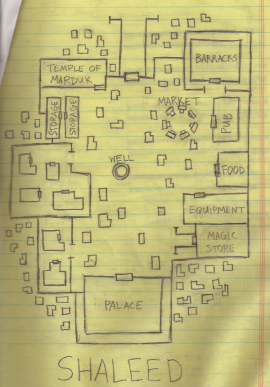 BARRACKS
TEMPLE OF
MARDUK
MARKET
STORAGE
STORAGE
PUB
WELL
FOOD
EQUIPMENT
MAGIC
STORE
PALACE
SHALEED